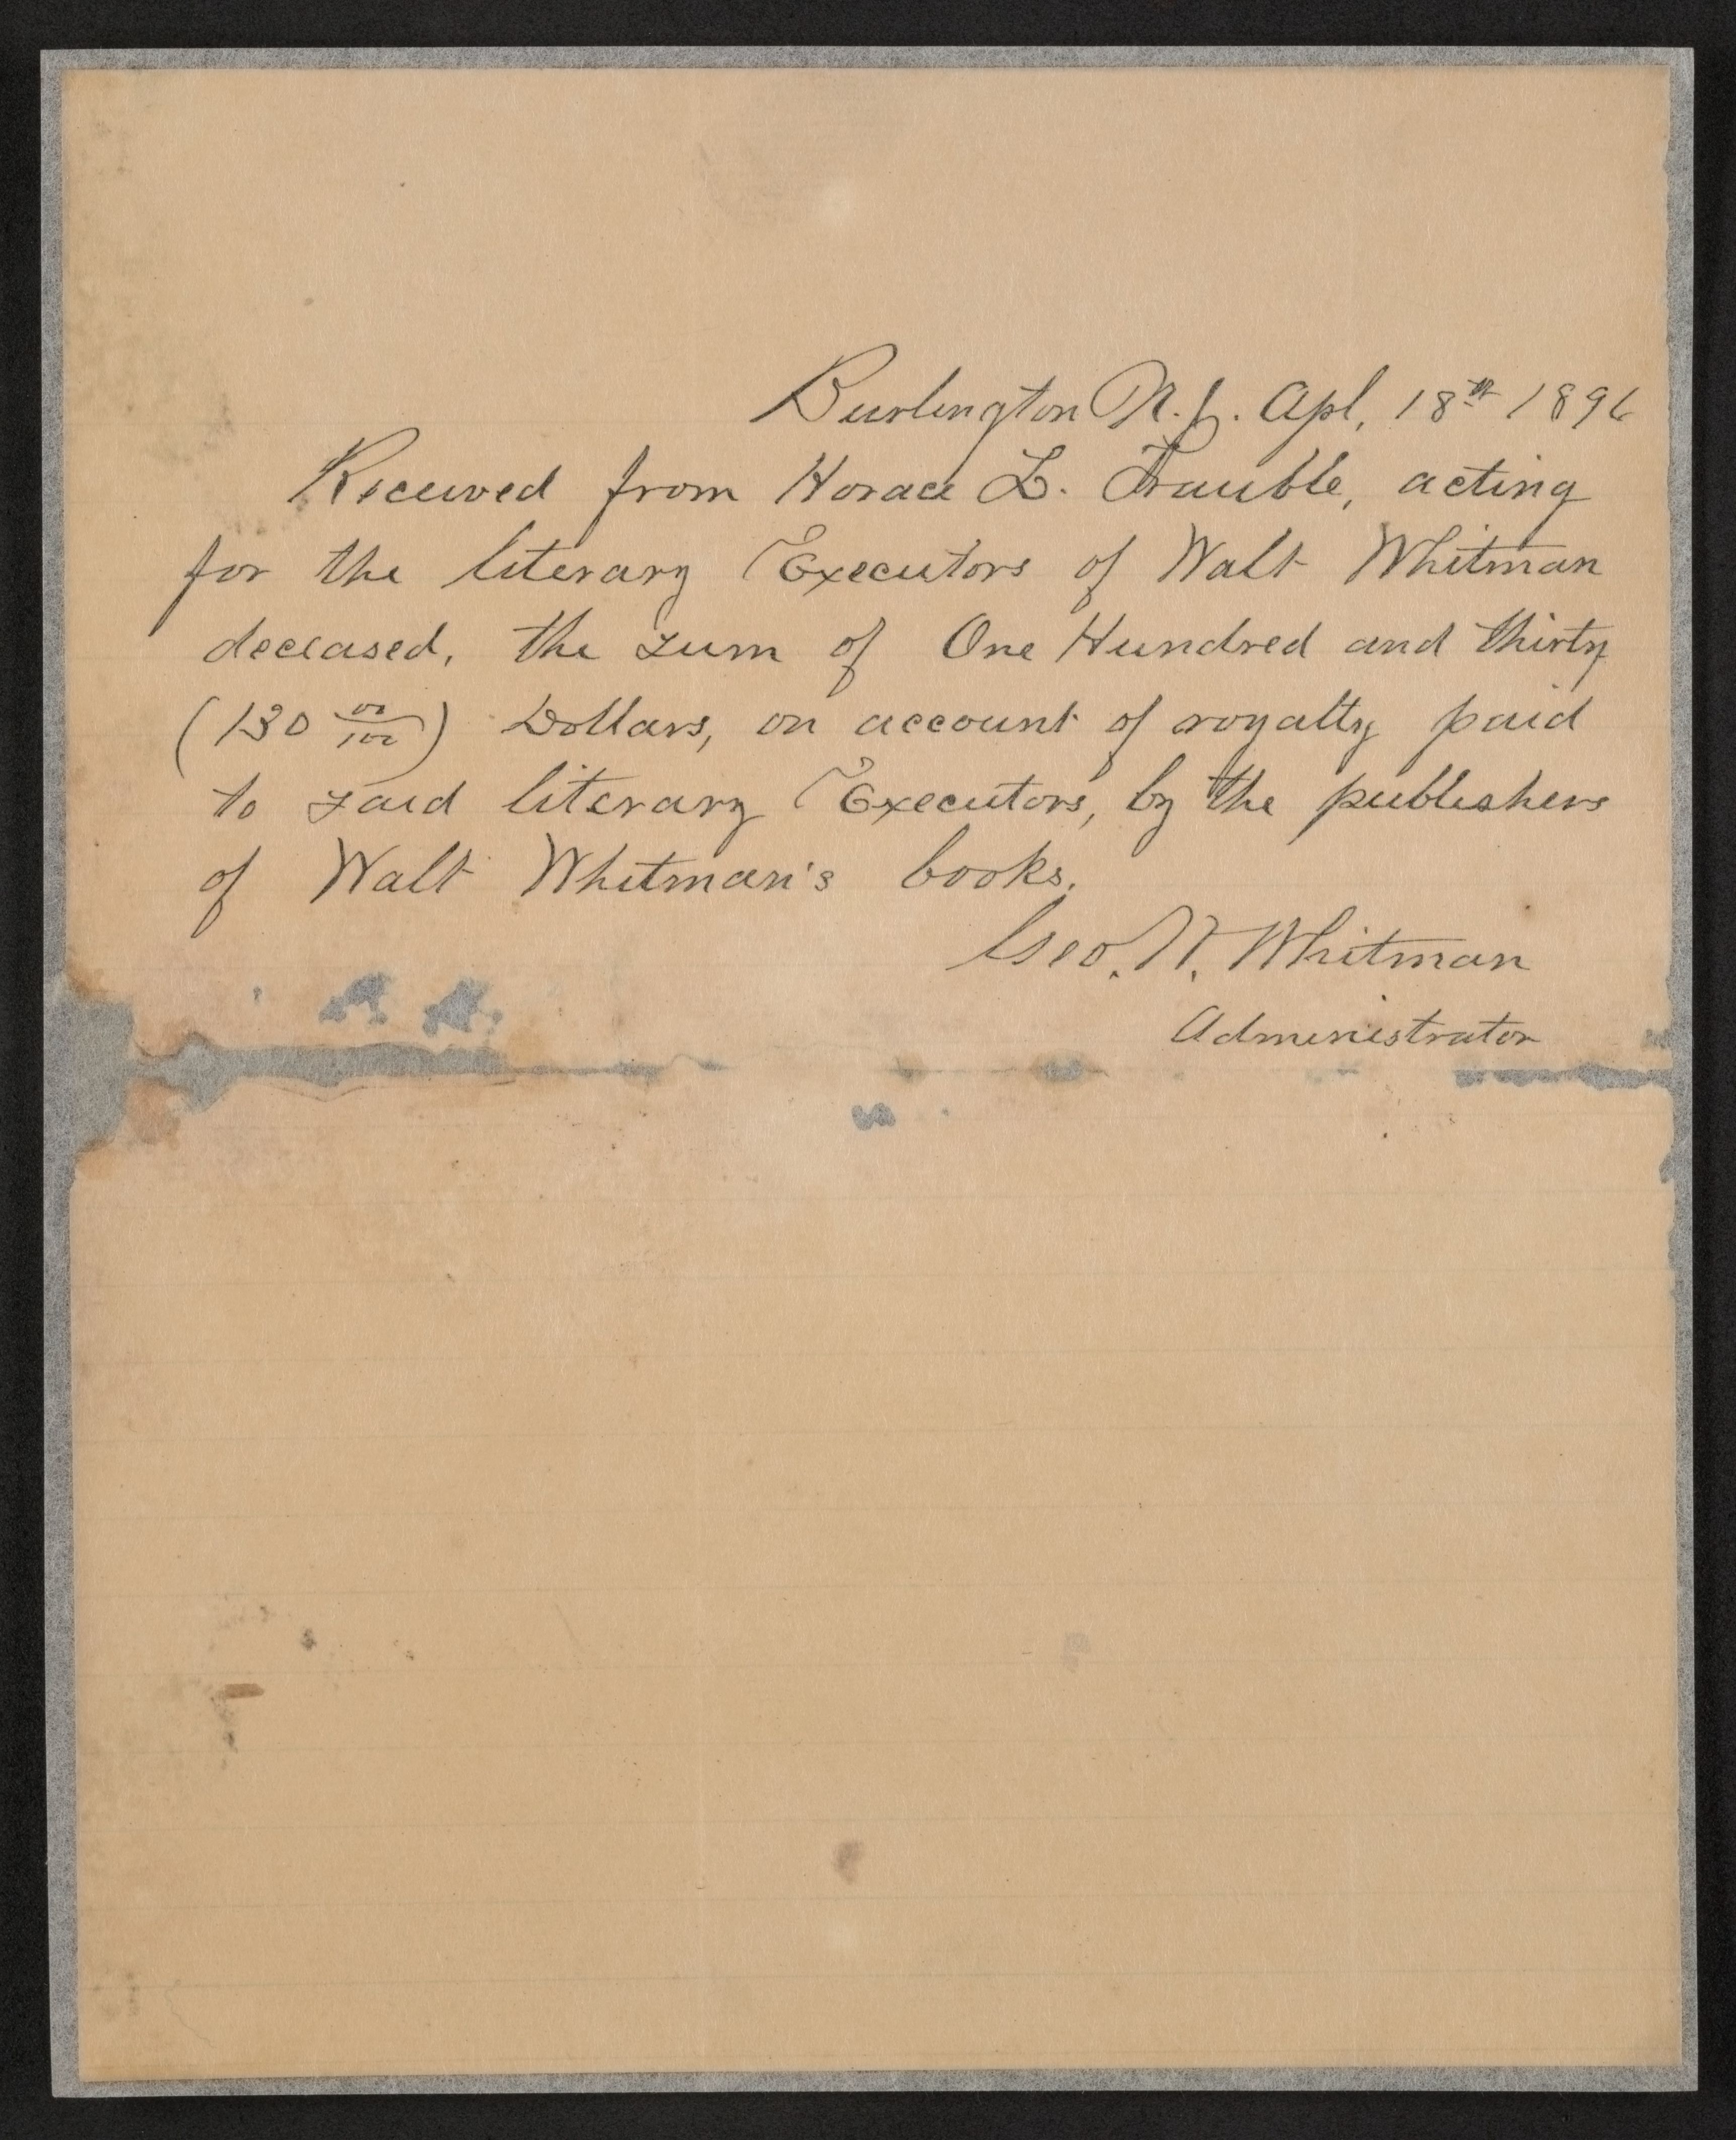 Burlington N.J. Apl, 18th 1896
Received from Horace L. Trauble, acting
for the literary Executors of Walt Whitman
deceased, the sum of One Hundred and thirty
(130 00/100) Dollars, on account of royalty paid
to said literary Executors, by the publishers
of Walt Whitman's books.
Geo. W. Whitman
Administrator